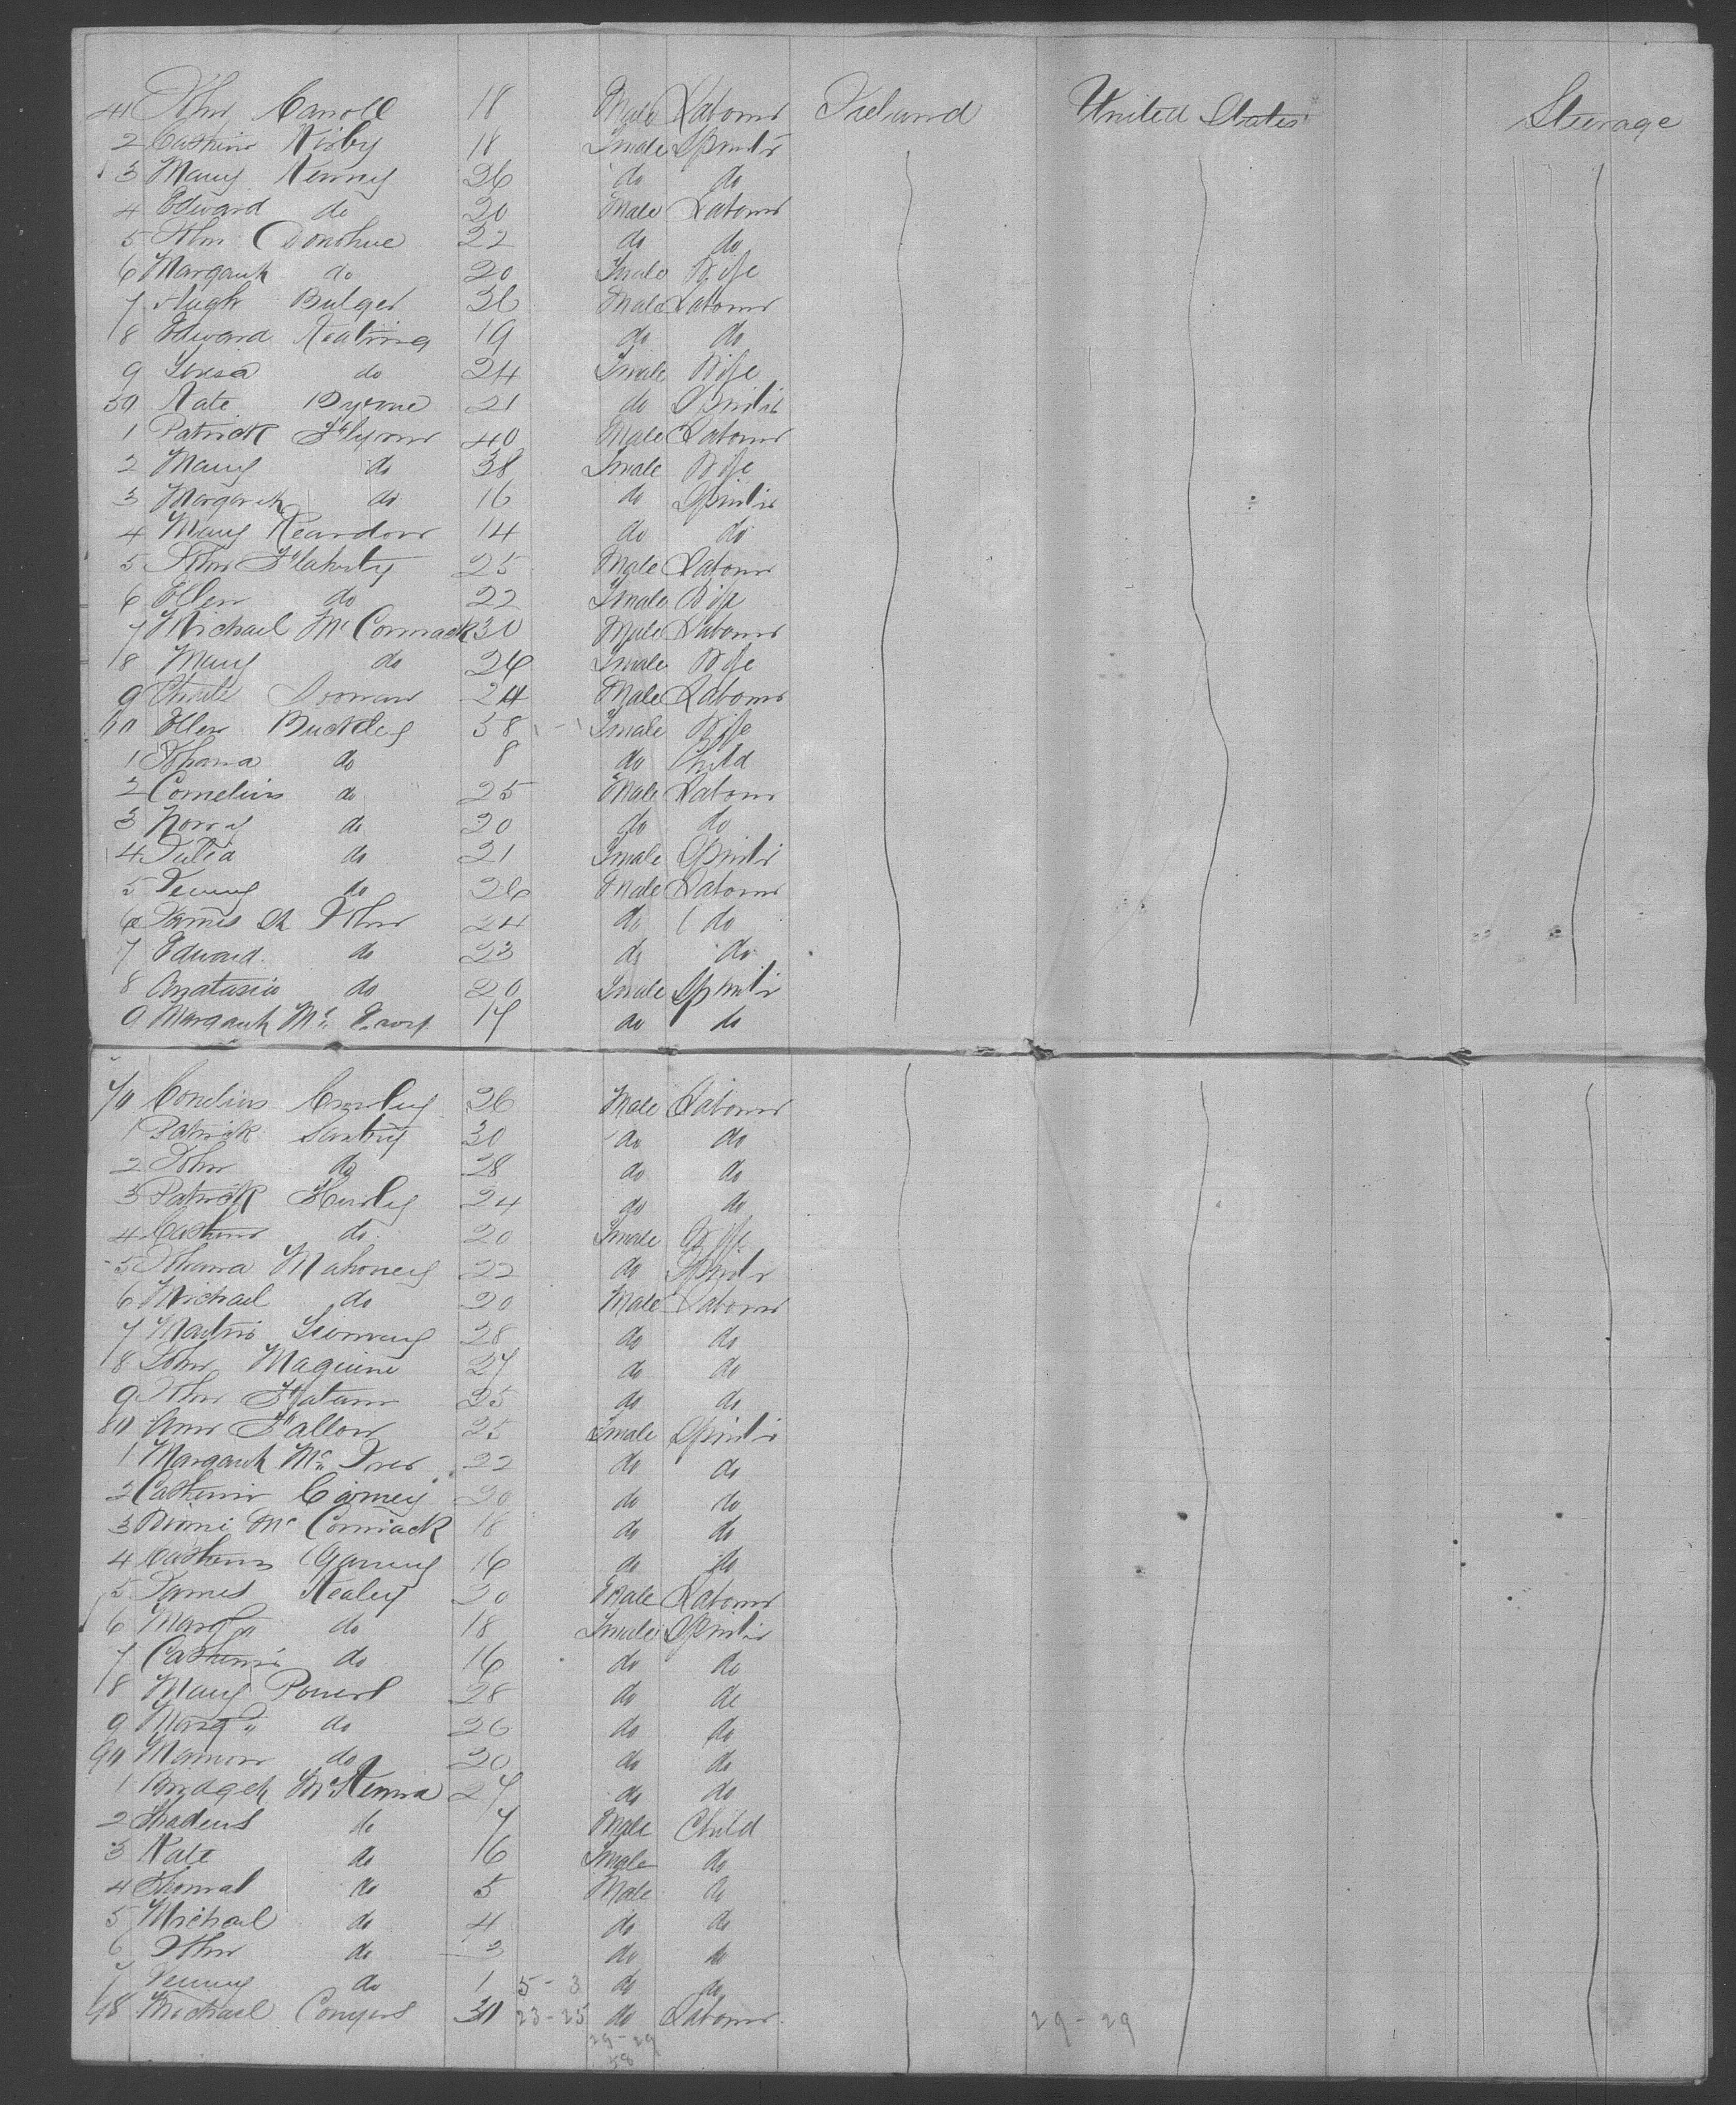 41 John Carroll 18 Male Laborer Ireland United States Steerage
2 Catherine Kirby 18 Female Spinster
3 Mary Kenny 26 do do
4 Edward do 20 Male Laborer
5 John Donohue 22 do do
6 Margaret do 20 Female Wife
7 Hugh Bulger 36 Male Laborer
8 Edward Keating 19 do do
9 do 24 Female Wife
50 Kate Byrne 21 do Spinster
1 Patrick Flynn 40 Male Laborer
2 Mary do 38 Female Wife
3 Margaret do 16 do Spinster
4 Mary Reardon 14 do do
5 John Flaherty 25 Male Laborer
6 Ellen do 22 Female Wife
7 Michael McCormack 30 Male Laborer
8 Mary do 26 Female Wife
9 24 Male Laborer
60 Ellen Buckley 58 Female Wife
1 Johana do 8 do Child
2 Cornelius do 25 Male Laborer
3 do 20 do do
4 Julia do 21 Female Spinster
5 do 26 Male Laborer
6 James St John 24 do do
7 Edward do 23 do do
8 Anatasia do 20 Female Spinster
9 Margaret Mc 17 do do
70 Cornelius Crowley 26 Male Laborer
1 Patrick Santry 30 do do
2 John do 28 do do
3 Patrick Hurley 24 do do
4 Catherine do 20 Female Wife
5 Johana Mahoney 22 do Spinster
6 Michael do 20 Male Laborer
7 Martin 28 do do
8 John Maguire 27 do do
9 John 25 do do
80 Ann Fallon 25 Female Spinster
1 Margaret Mc 22 do do
2 Catherine Carney 20 do do
3 McCormack 18 do do
4 Catherine 16 do do
5 James Kealey 20 Male Laborer
6 Margt do 18 Female Spinster
7 Catherine do 16 do do
8 Mary Powers 28 do do
9 Margt do 26 do do
90 do 20 do do
1 Bridget McKenna 27 do do
2 Thadeus do 7 Male Child
3 Kate do 16 Female do
4 Thomas do 5 Male do
5 Michael do 4 do do
6 John do 3 do do
7 do 1 5 - 3 do do
98 Michael Conyers 30 23 - 25 do Laborer 29 - 29
29 - 29
58